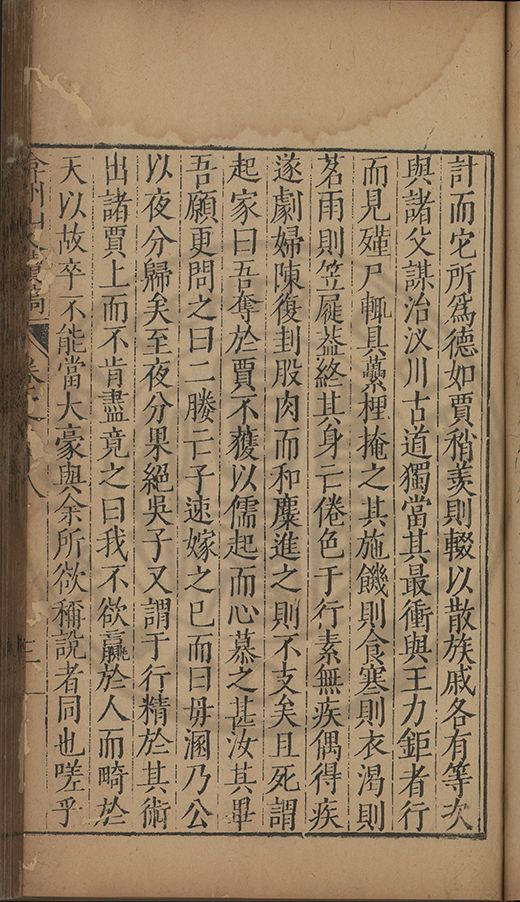 計而它所爲德如賈稍羨則輟以散族戚各有等次
與諸父謀治汊川古道獨當其最衝與王力鉅者行
而見殣尸輒具虆梩掩之其施饑則食寒則衣渴則
茗雨則笠屣葢終其身亡倦色于行素無疾偶得疾
遂劇婦陳復刲股肉而和糜進之則不支矣且死謂
起家曰吾奪於賈不獲以儒起而心慕之甚汝其畢
吾願更問之曰二媵亡子速嫁之已而曰毋溷乃公
以夜分歸矣至夜分果絕吳子又謂于行精於其術
出諸賈上而不肯盡竟之曰我不欲贏於人而畸於
天以故卒不能當大豪與余所欲稱說者同也嗟乎
弇州山人續稿
卷 八